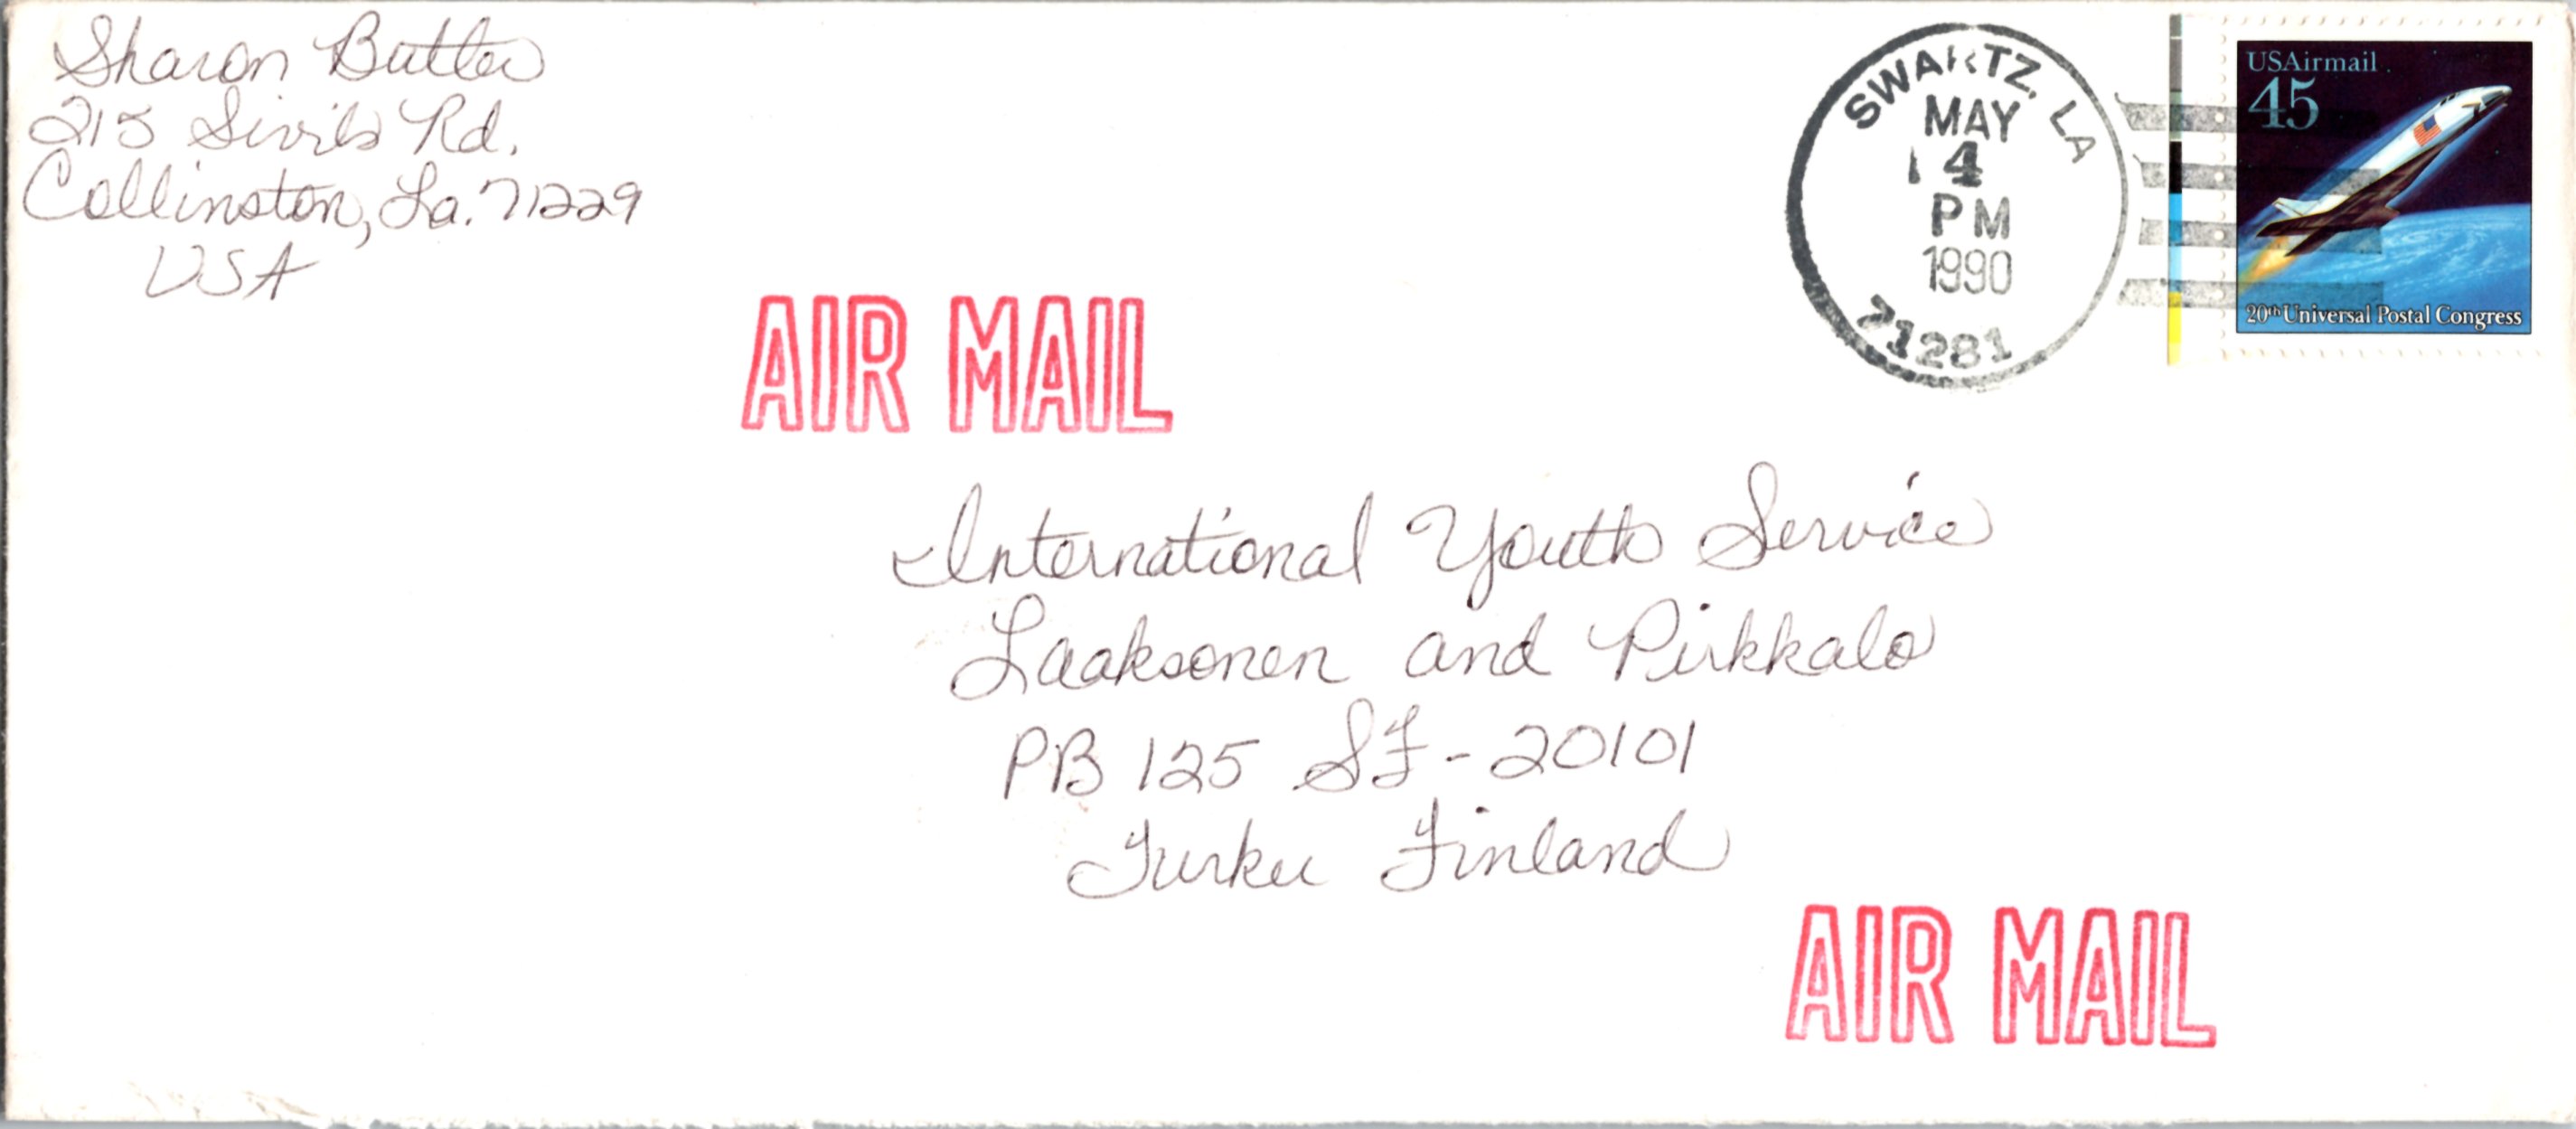 Sharon Butler
215 Sivils Rd.
Collinston, La. 71229
USA
SWARTZ, LA
MAY
14
PM
1990
71281
USAirmail
45
20th Universal Postal Congress
AIR MAIL
International Youth Service
Laaksonen and Pirkkalo
PB 125 SF-20101
Turku Finland
AIR MAIL